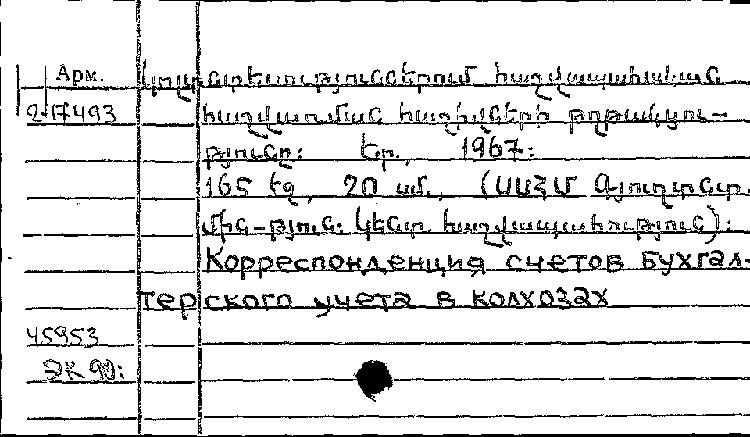 Арм. Կոլտնտեսություններում հաշվապահական
2-17493 հաշվառման հաշիվների թղթակցու-
թյունը: Եր., 1967:
165 էջ, 20 սմ., (ՍՍՀՄ Գյուղտնտ.
մին-թյուն: Կենտ. հաշվապահություն):
Корреспонденция счетов бухгал-
терского учета в колхозах
45953
ЭК 90: